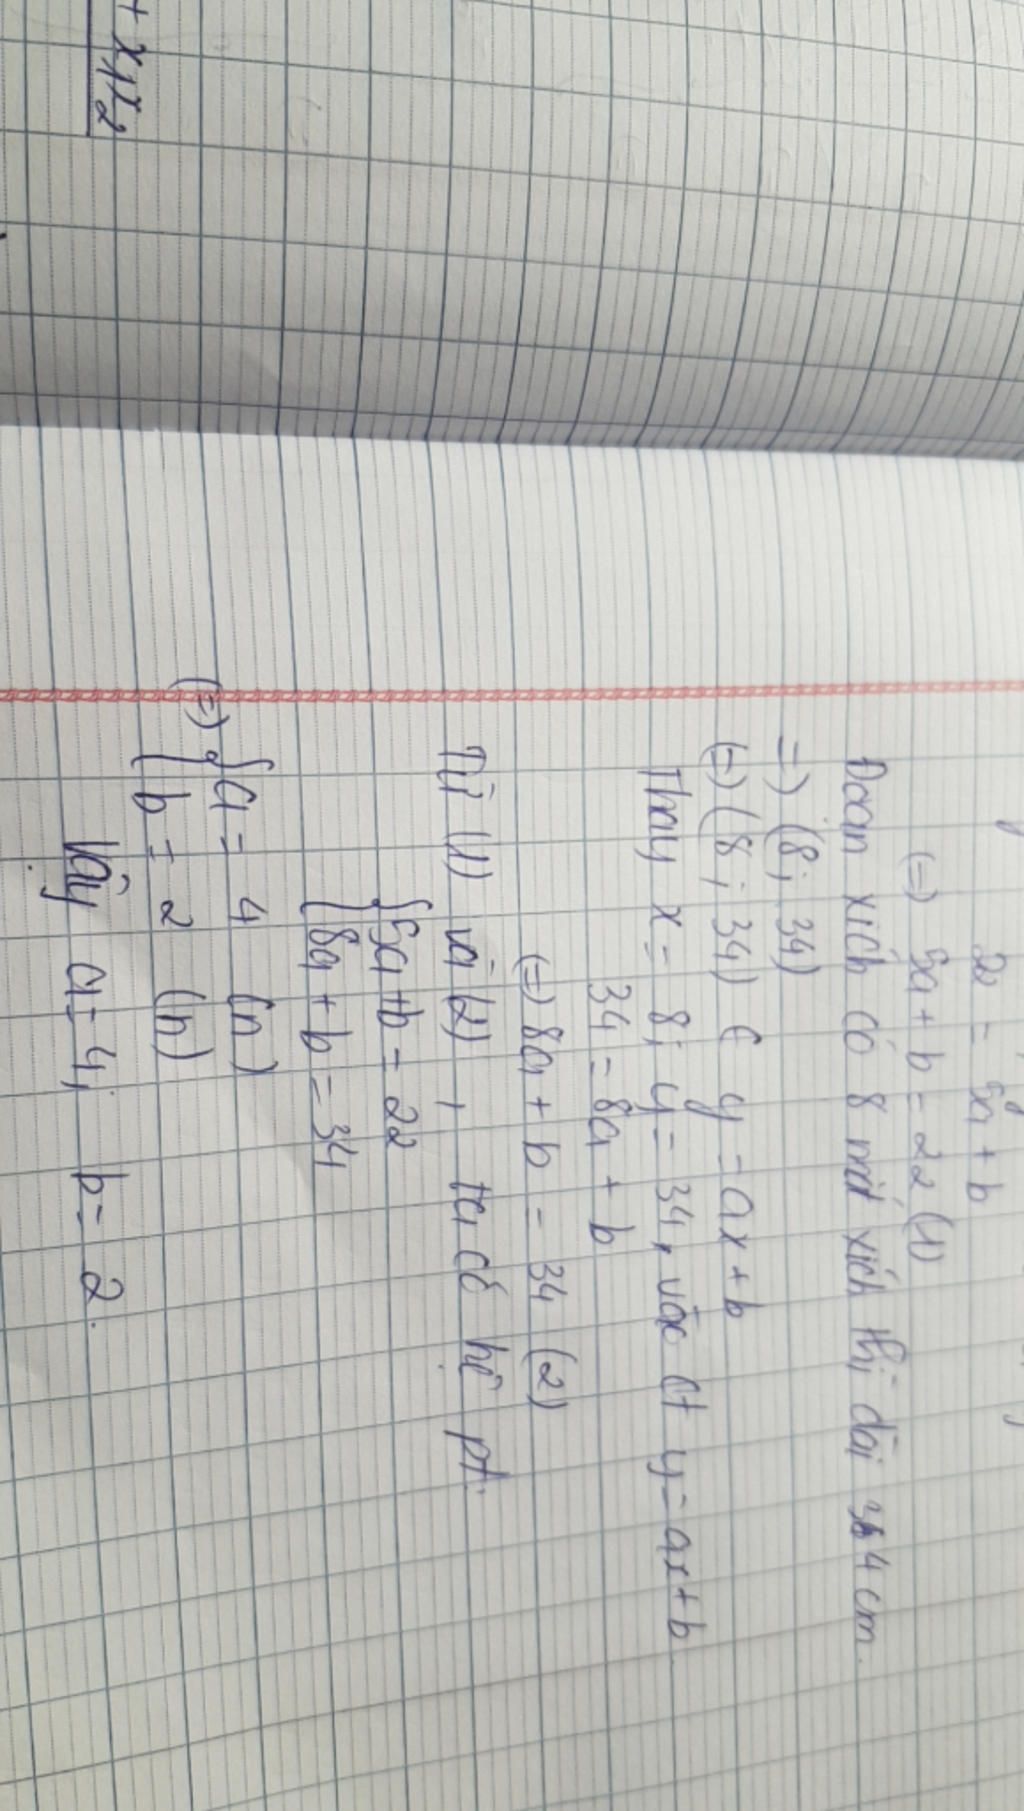 + x₁x₂
22 = 5a + b
(=) 5a + b = 22 (1)
Đoạn xích có 8 mắt xích thì dài 34 cm.
=) (8; 34)
(=) (8; 34) ∈ y = ax + b
Thay x = 8; y = 34, vào ct y = ax + b
34 = 8a + b
(=) 8a + b = 34 (2)
Từ (1) và (2), ta có hệ pt:
{ 5a + b = 22
{ 8a + b = 34
(=) { a = 4 (n)
{ b = 2 (n)
Vậy a = 4; b = 2.